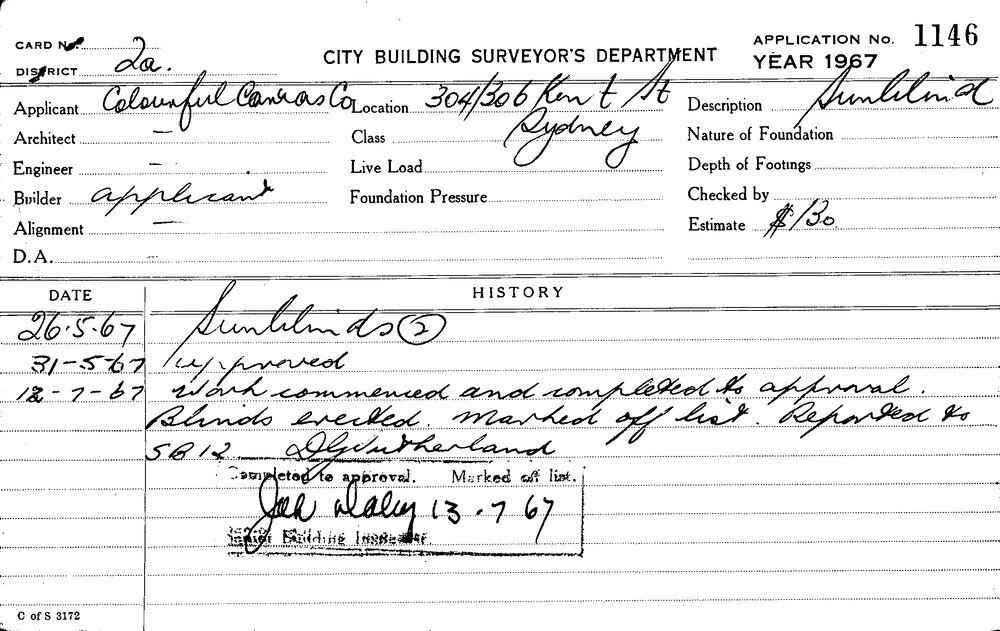 CARD No.
DISTRICT 2a.
CITY BUILDING SURVEYOR'S DEPARTMENT
APPLICATION No. 1146
YEAR 1967
Applicant Colourful Canvas Co Location 304/306 Kent St Description Sunblind
Architect — Class Sydney Nature of Foundation
Engineer — Live Load Depth of Footings
Builder applicant Foundation Pressure Checked by
Alignment — Estimate $130
D.A. —
DATE HISTORY
26.5.67 Sunblinds (2)
31-5-67 approved
12-7-67 Work commenced and completed to approval.
Blinds erected. Marked off list. Reported to
SB 12 DG Sutherland
Completed to approval. Marked off list.
13.7.67
Senior Building Inspector
C of S 3172